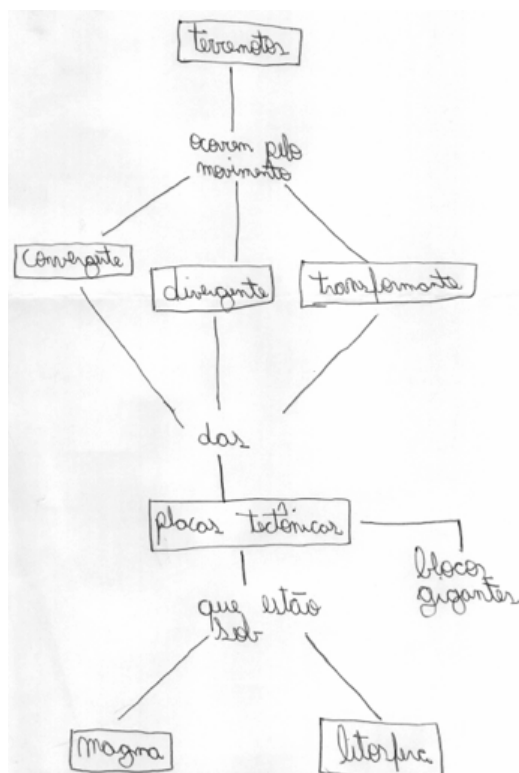 terremotos
ocorem pelo
movimento
convergente
divergente
transformante
das
placas tectônicas
blocos
gigantes
que estão
sob
magma
litosfera